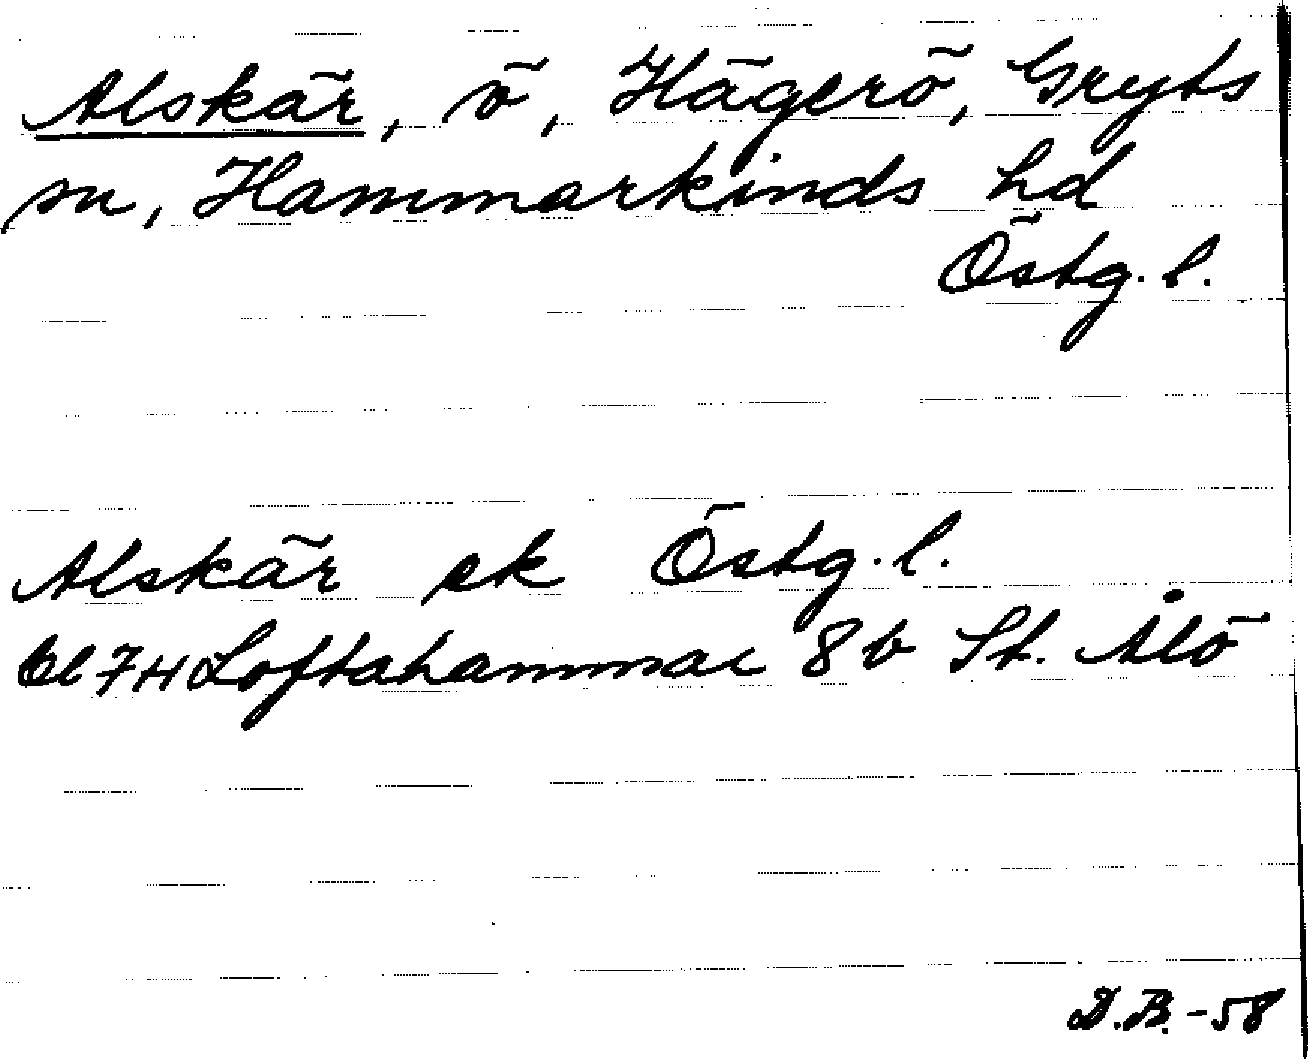 Alskär, ö, Hägerö, Gryts
sn, Hammarkinds hd
Östg. l.
Alskär ek Östg. l.
Bl 7H Loftahammar 8b St. Ålö
D.B. -58